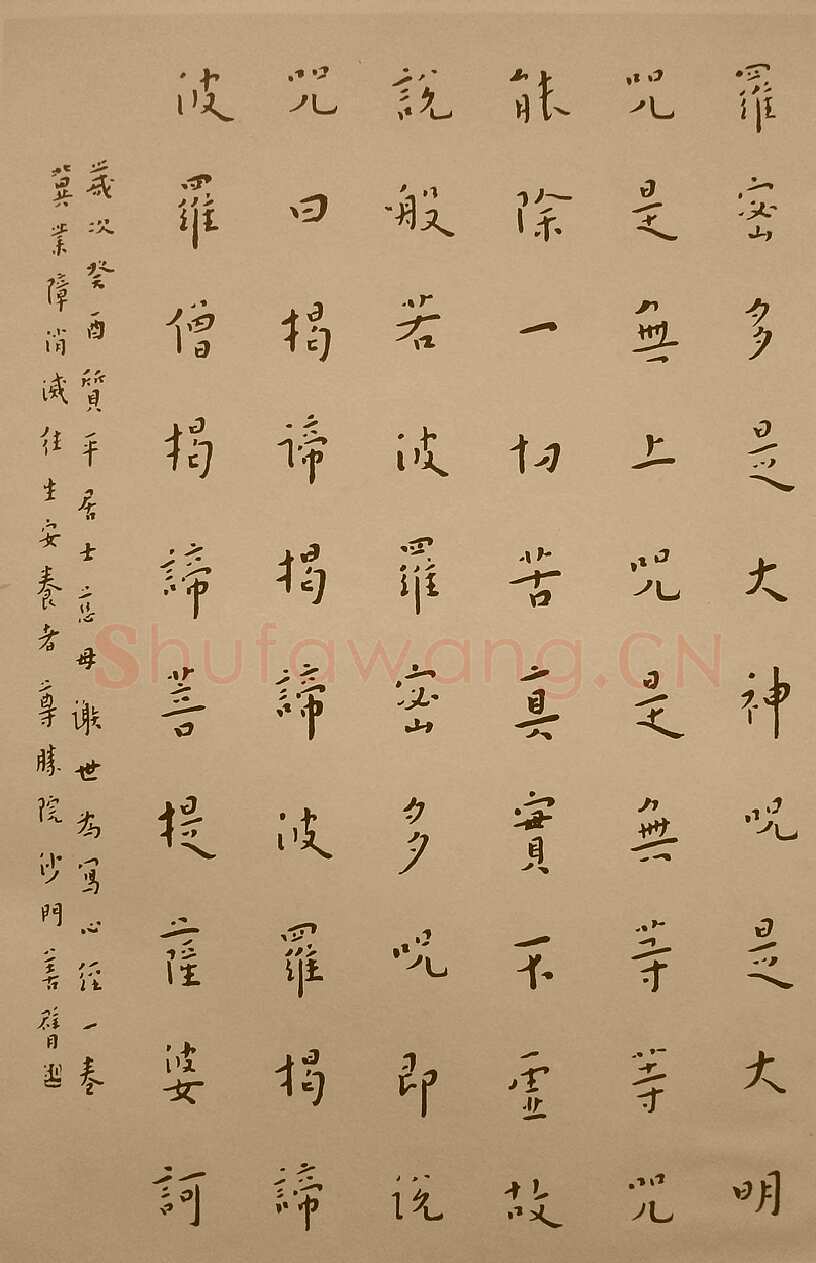 羅密多是大神呪是大明
呪是無上呪是無等等呪
能除一切苦真實不虛故
說般若波羅密多呪即说
呪曰揭諦揭諦波羅揭諦
波羅僧揭諦菩提薩婆訶
歲次癸酉質平居士慈母謝世為寫心經一卷
冀業障消滅往生安養者尊勝院沙門善臂
Shufawang.CN